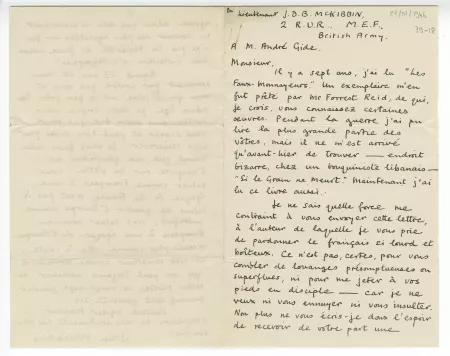 Lieutenant J.D.B. McKIBBIN,
2 R.U.R., M.E.F.,
British Army.
39-18
A M. André Gide.
Monsieur,
Il y a sept ans, j'ai lu "Les
Faux-Monnayeurs." Un exemplaire m'en
fut prêté par Mr Forrest Reid, de qui,
je crois, vous connaissez certaines
œuvres. Pendant la guerre j'ai pu
lire la plus grande partie des
vôtres, mais il ne m'est arrivé
qu'avant-hier de trouver — endroit
bizarre, chez un bouquiniste libanais —
"Si le Grain ne Meurt." Maintenant j'ai
lu ce livre aussi.
Je ne sais quelle force me
contraint à vous envoyer cette lettre,
à l'auteur de laquelle je vous prie
de pardonner le français si lourd et
boîteux. Ce n'est pas, certes, pour vous
combler de louanges présomptueuses ou
superflues, ni pour me jeter à vos
pieds en disciple — car je ne
veux ni vous ennuyer ni vous insulter.
Non plus ne vous écris-je dans l'espoir
de recevoir de votre part une